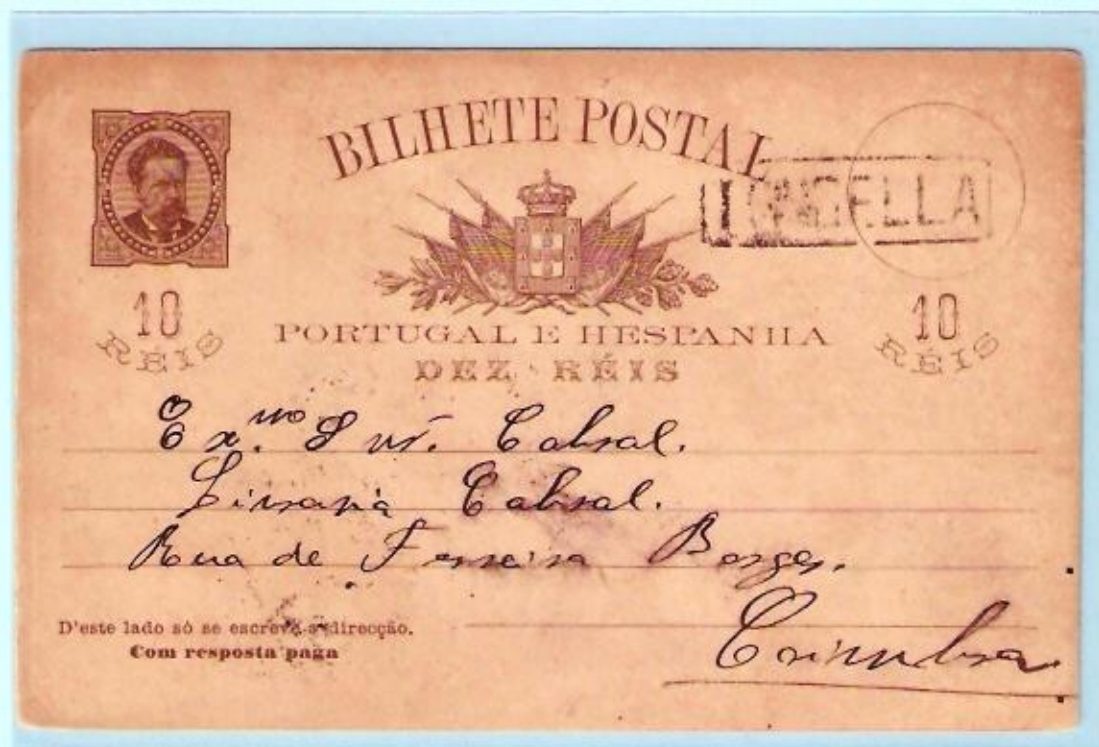 BILHETE POSTAL
10 RÉIS
PORTUGAL E HESPANHA
10 RÉIS
DEZ RÉIS
Ex.mo Snr. Cabral.
Livraria Cabral.
Rua de Ferreira Borges.
Coimbra
D'este lado só se escreve a direcção.
Com resposta paga